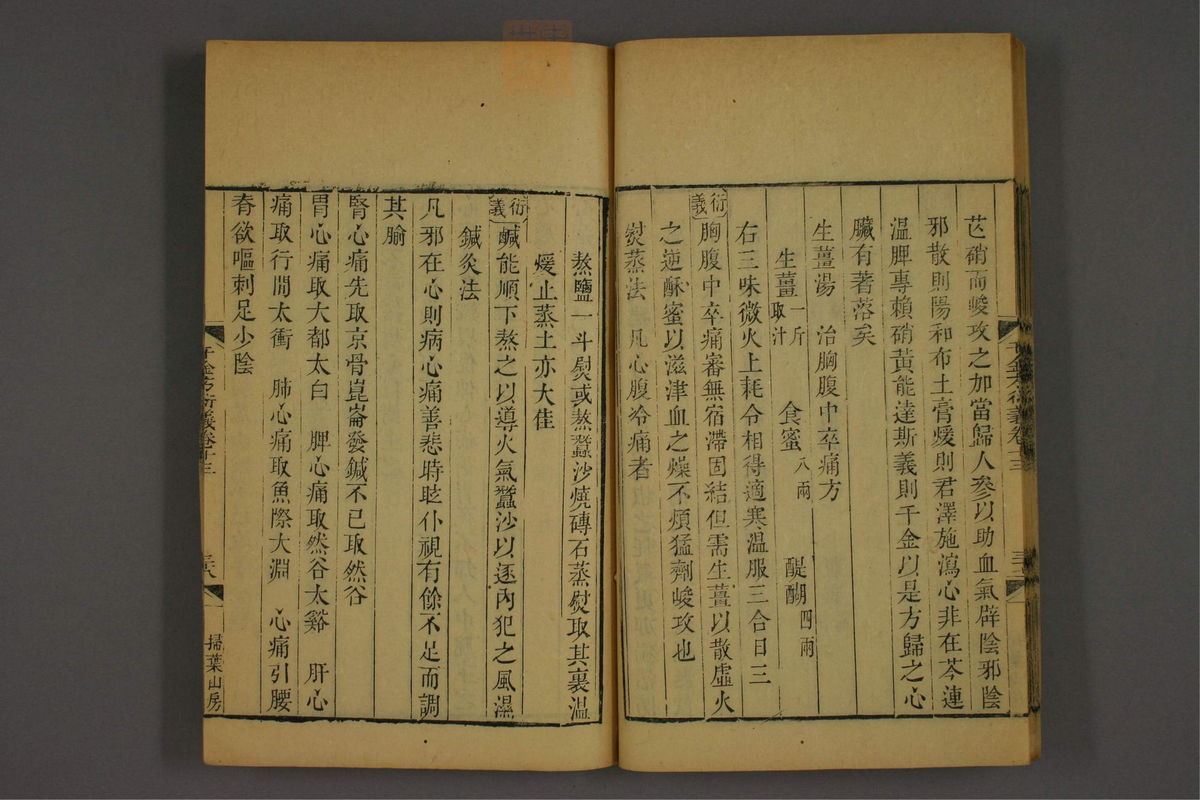 芒硝而峻攻之加當歸人參以助血氣辟陰邪陰
邪散則陽和布土膏煖則君澤施瀉心非在芩連
温脾專賴硝黃能達斯義則千金以是方歸之心
臟有著落矣
生薑湯　治胸腹中卒痛方
生薑一斤取汁　食蜜八兩　醍醐四兩
右三味微火上耗令相得適寒温服三合日三
衍義　胸腹中卒痛審無宿滯固結但需生薑以散虛火
之逆酥蜜以滋津血之燥不煩猛劑峻攻也
熨蒸法　凡心腹冷痛者
熬鹽一斗熨或熬蠶沙燒磚石蒸熨取其裏温
煖止蒸土亦大佳
衍義　鹹能順下熬之以導火氣蠶沙以逐內犯之風濕
鍼灸法
凡邪在心則病心痛善悲時眩仆視有餘不足而調
其腧
腎心痛先取京骨崑崙發鍼不已取然谷
胃心痛取大都太白　脾心痛取然谷太谿　肝心
痛取行間太衝　肺心痛取魚際大淵　心痛引腰
脊欲嘔刺足少陰
千金方衍義卷十三
三八
掃葉山房